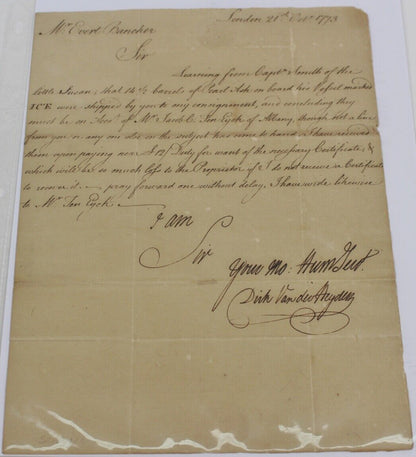 London 21st Octr. 1773
Mr. Evert Bancker
Sir
Learning from Captn. Smith of the
Susan, that 14½ barrels of Pearl Ash on board his Vessel marked
ICE were shipped by you to my consignment, and concluding they
must be on Acct. of Mr. Jacob C. Ten Eyck of Albany, though not a line
from you or any one else on the subject has come to hand, I have
them upon paying near £12/ Duty for want of the necessary Certificate, &
which will be so much Loss to the Proprietor if I do not receive a Certificate
to recover it, pray forward one without delay, I have wrote likewise
to Mr. Ten Eyck
I am
Sir
Your mo: Hum Servt.
Dirk Van der Heyden